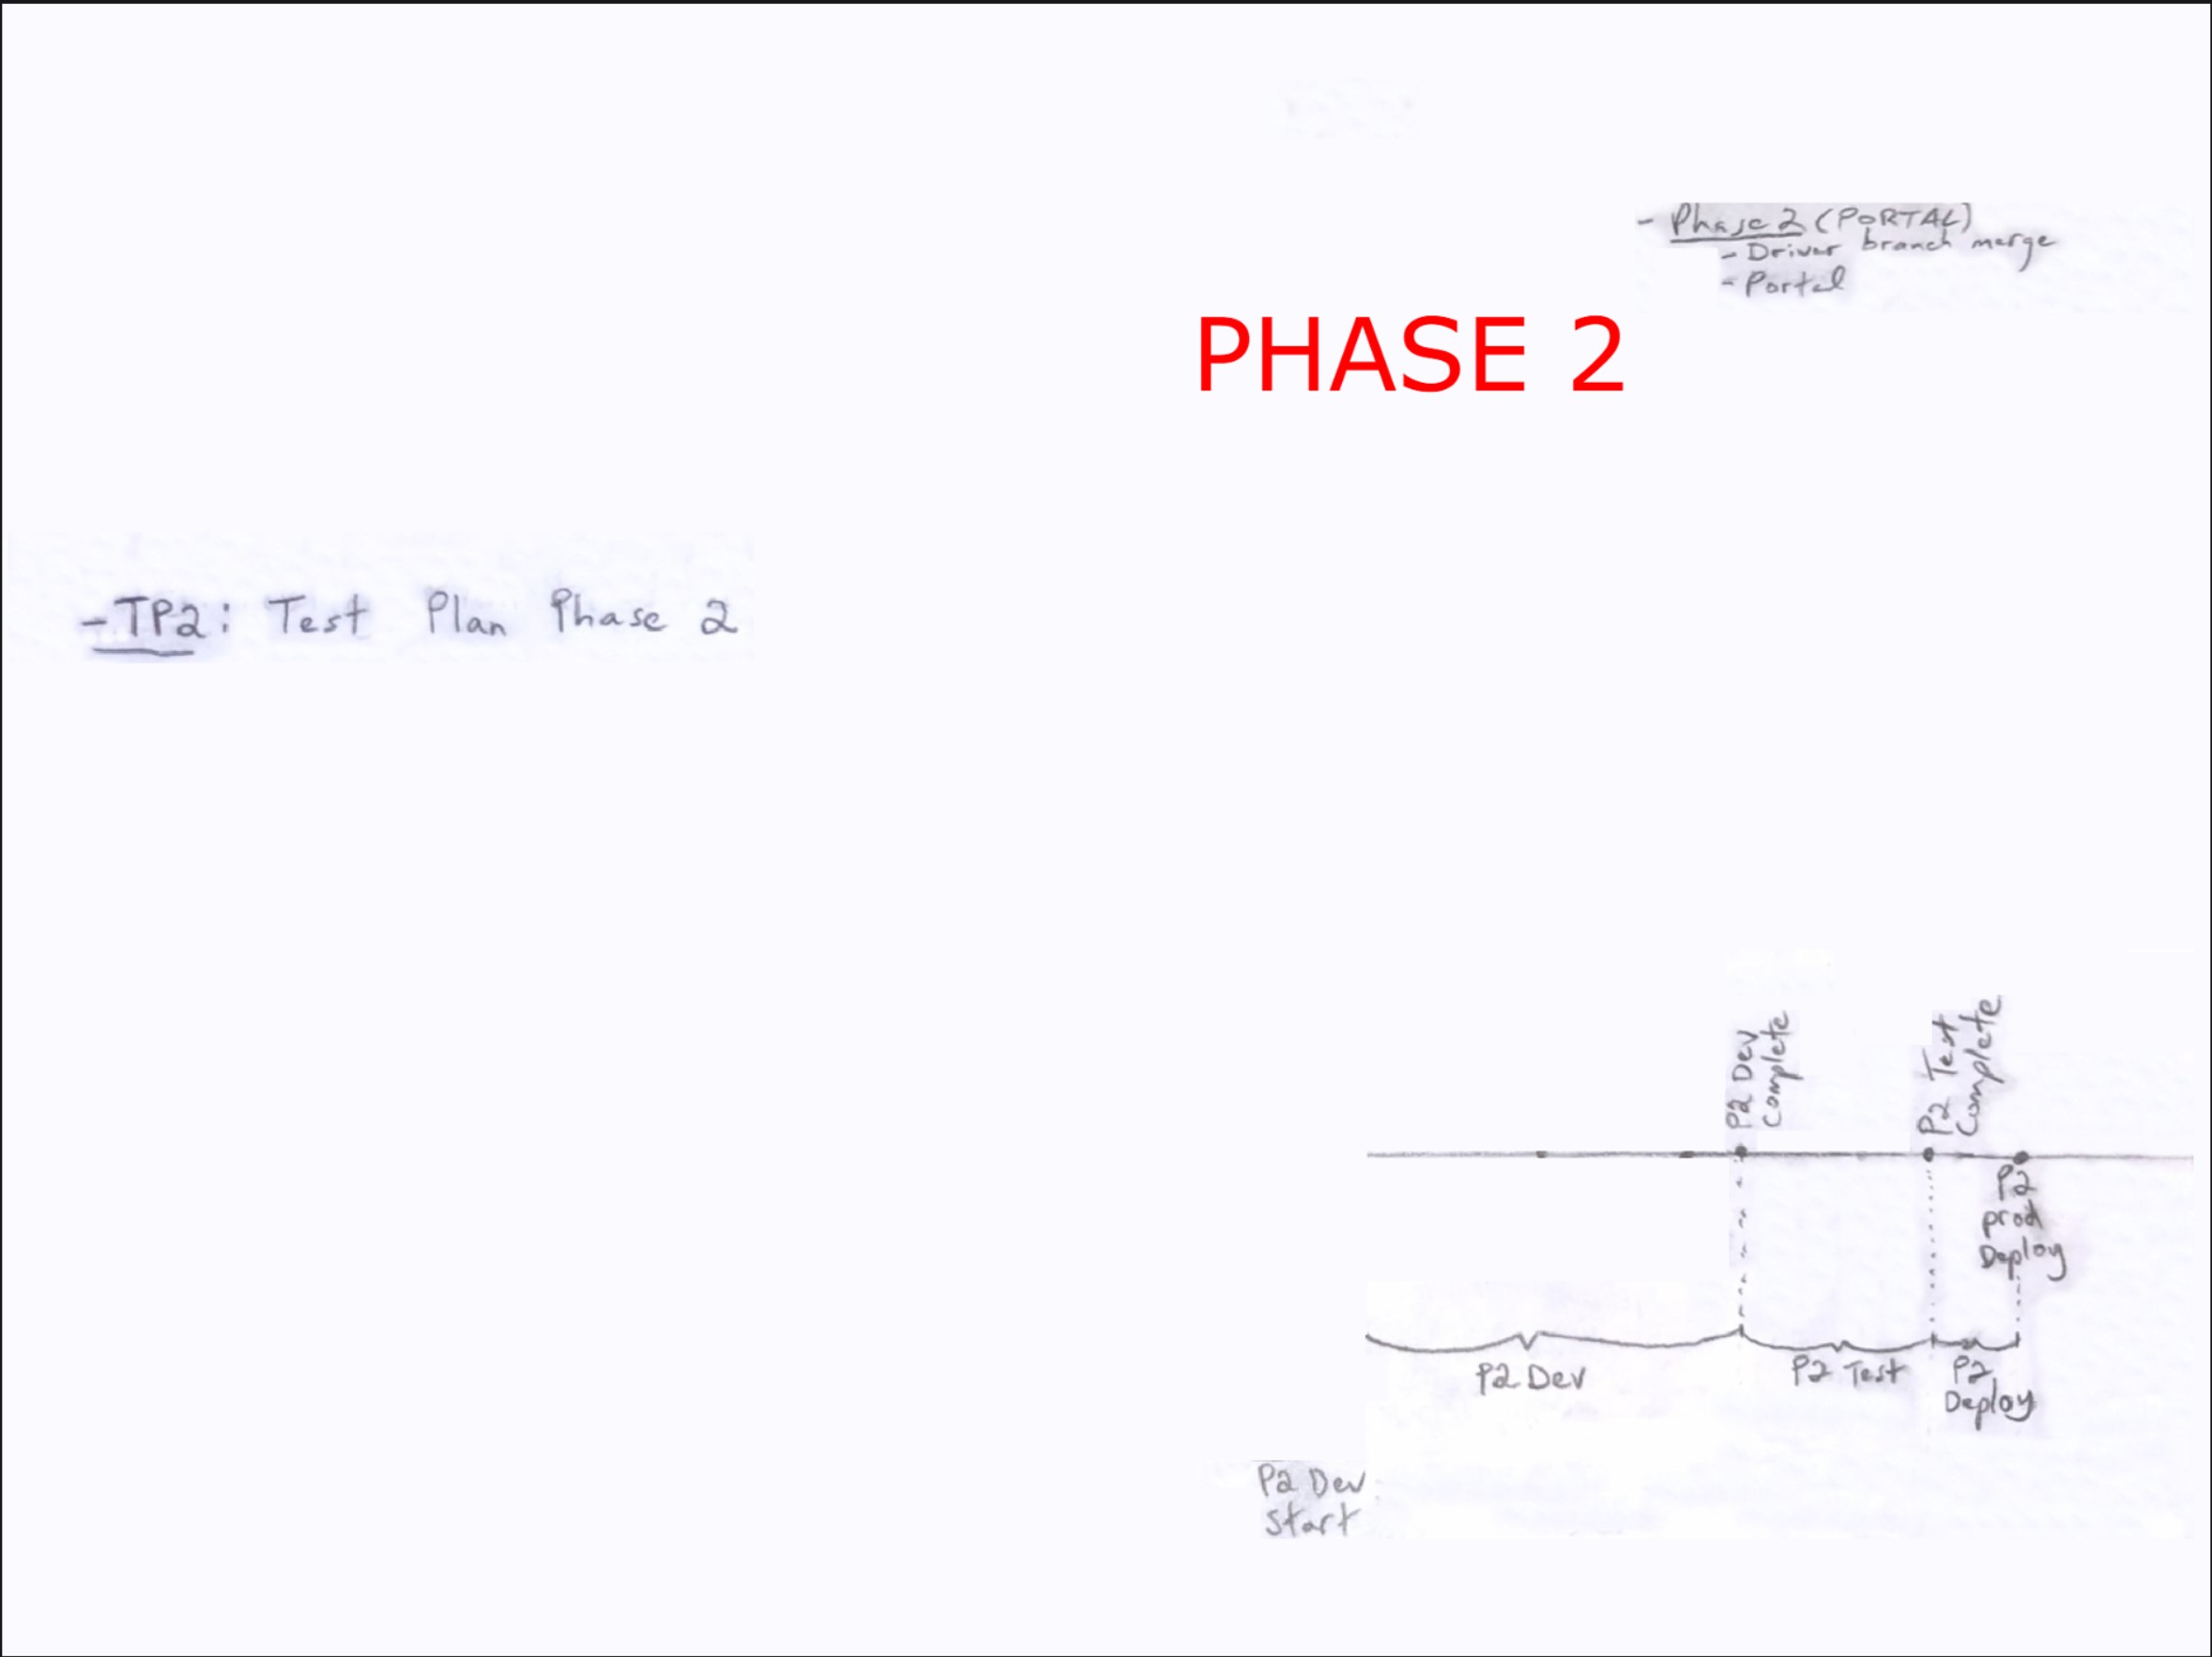 - Phase 2 (PORTAL)
- Driver branch merge
- Portal
PHASE 2
- TP2: Test Plan Phase 2
P2 Dev
Complete
P2 Test
Complete
P2
prod
Deploy
P2 Dev
P2 Test
P2
Deploy
P2 Dev
Start